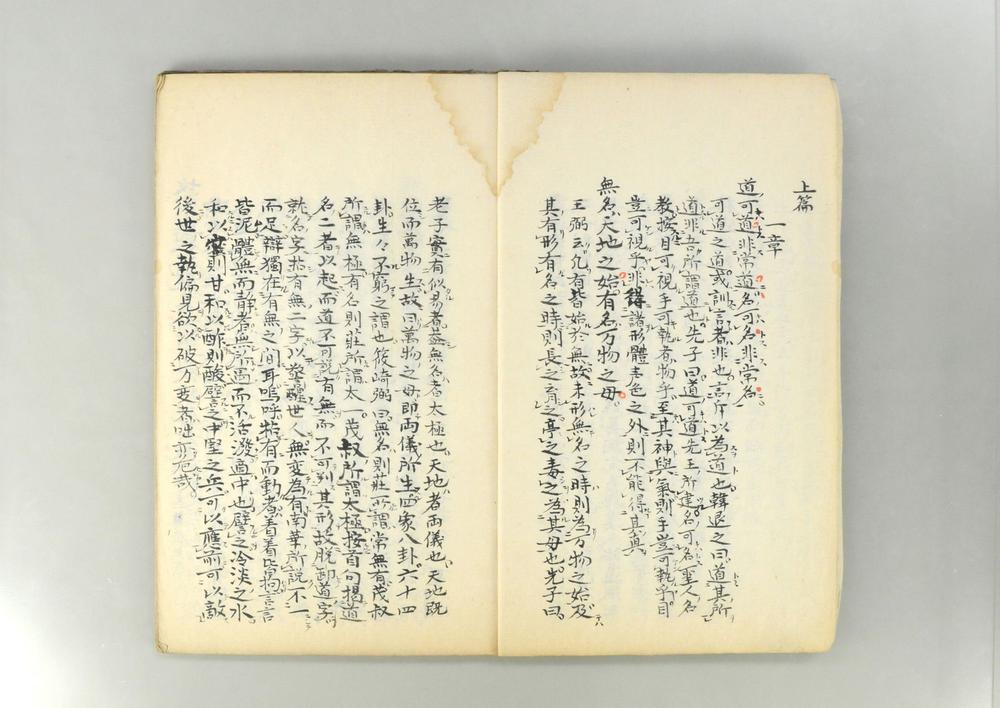 上篇
一章
道可道非常道名可名非常名
可道之道或訓言者非也言所以為道也韓退之曰道其所
道非吾所謂道也先子曰道可道先王所建名可名聖人名
教按目可視手可執者物乎至其神與氣則手豈可執乎目
豈可視乎非得諸形體声色之外則不能得其真
無名天地之始有名万物之母
王弼云凢有皆始於無故未形無名之時則為万物之始及
其有形有名之時則長之育之亭之毒之為其母也先子曰
老子實有似易者蓋無名者太極也天地者両儀也天地既
位而萬物生故曰萬物之母即両儀所生四象八卦六十四
卦生々不窮之謂也筱崎弼曰無名則莊所謂常無有茂叔
所謂無極有名則莊所謂太一茂叔所謂太極按首句揭道
名二者以起而道不可説有無而不可判其形故脱卸道字
就名字拈有無二字以喚醒世人無変為有南華所説不一
而足辯獨在有無之間耳嗚呼拈有而動者着着皆為言言
皆泥體無而静者無所過而不活潑適中也譬之冷淡之水
和以蜜則甘和以酢則酸譬之中堅之兵可以應前可以敵
後世之執偏見欲以破万変者咄亦危哉